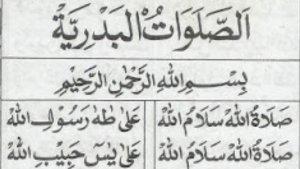 اَلصَّلَوَاتُ الْبَدْرِيَّةْ
بِسْمِ اللهِ الرَّحْمٰنِ الرَّحِيْمِ
صَلَاةُ اللهْ سَلَامُ اللهْ عَلَى طٰهٰ رَسُوْلِ اللهْ
صَلَاةُ اللهْ سَلَامُ اللهْ عَلَى يٰسٓ حَبِيْبِ اللهْ